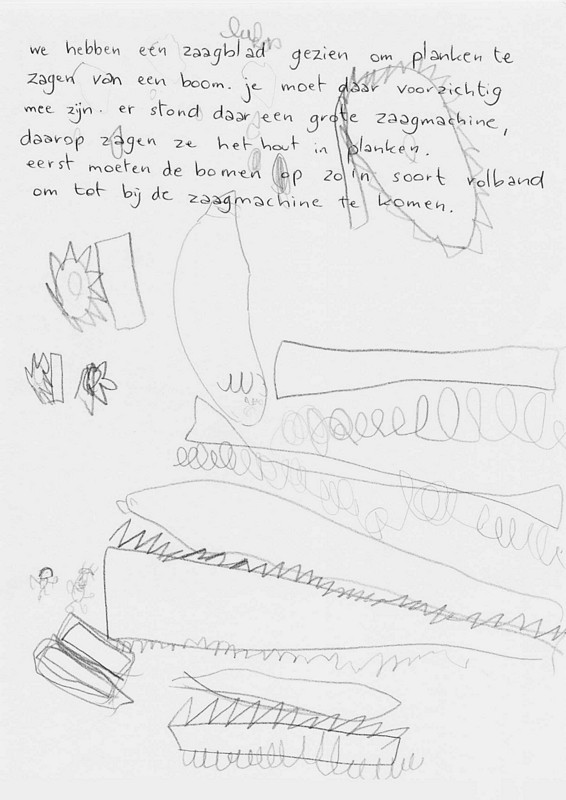 we hebben een zaagblad gezien om planken te
zagen van een boom. je moet daar voorzichtig
mee zijn. er stond daar een grote zaagmachine,
daarop zagen ze het hout in planken.
eerst moeten de bomen op zo'n soort rolband
om tot bij de zaagmachine te komen.